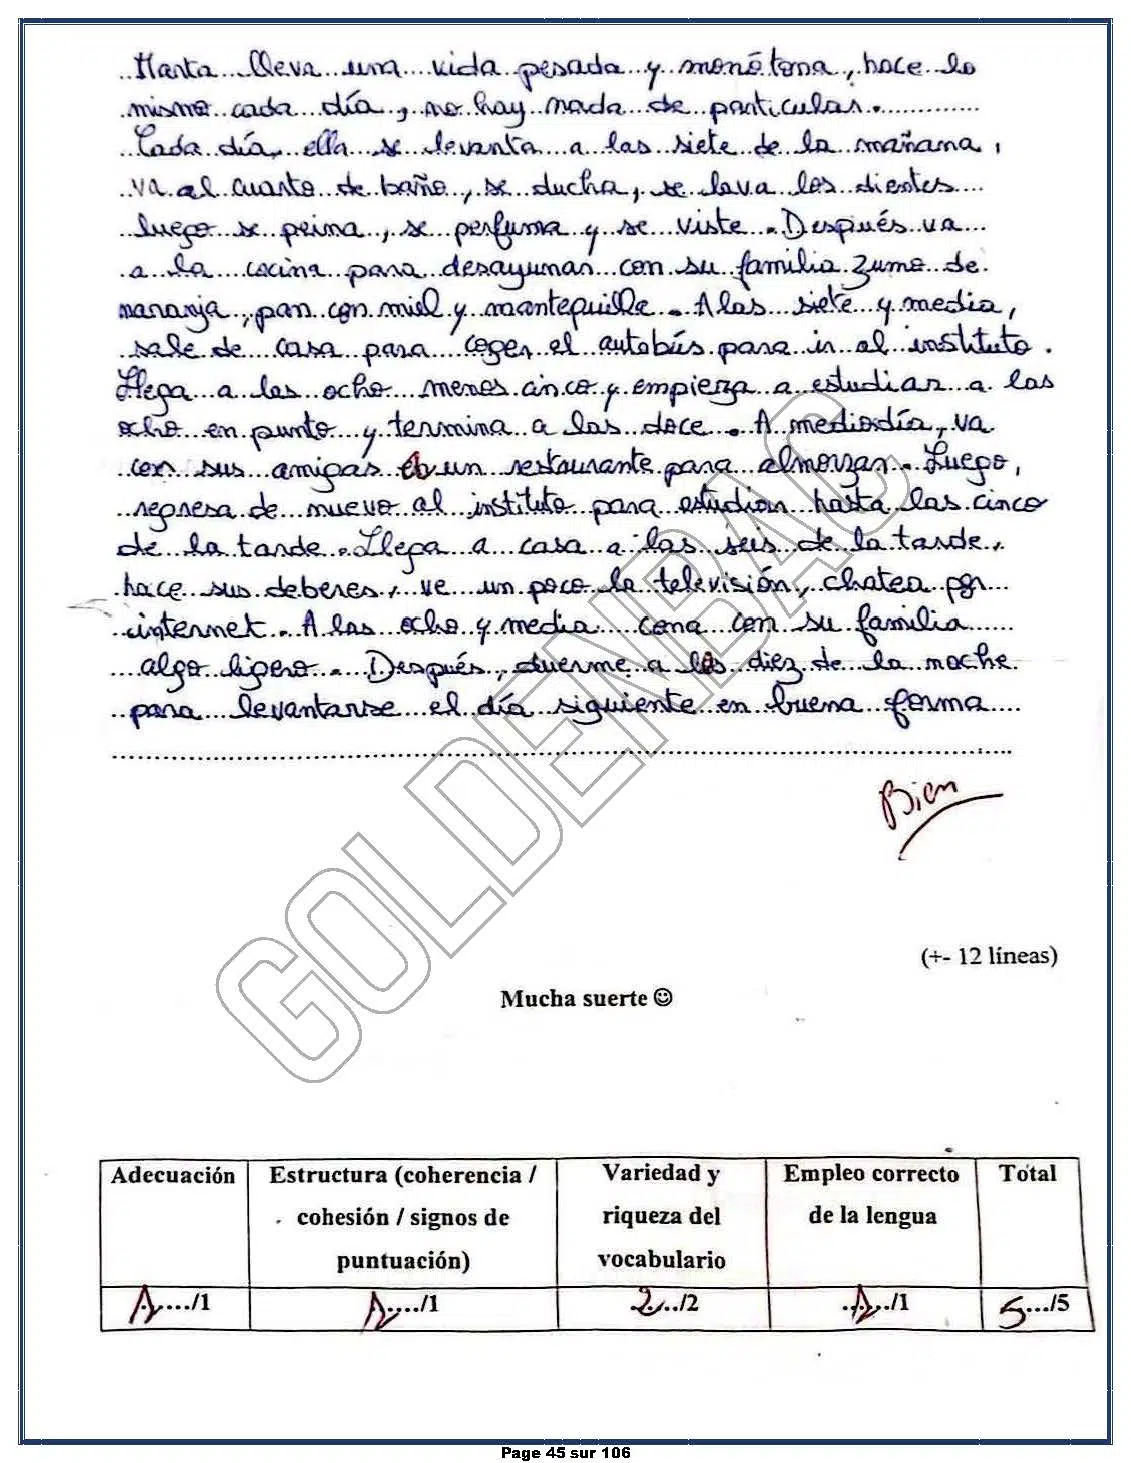 Marta lleva una vida pesada y monótona, hace lo
mismo cada día, no hay nada de particular.
Cada día, ella se levanta a las siete de la mañana,
va al cuarto de baño, se ducha, se lava los dientes
luego se peina, se perfuma y se viste. Después va
a la cocina para desayunar con su familia zumo de
naranja, pan con miel y mantequilla. A las siete y media,
sale de casa para coger el autobús para ir al instituto.
Llega a las ocho menos cinco y empieza a estudiar a las
ocho en punto y termina a las doce. A mediodía, va
con sus amigas a un restaurante para almorzar. Luego,
regresa de nuevo al instituto para estudiar hasta las cinco
de la tarde. Llega a casa a las seis de la tarde,
hace sus deberes, ve un poco la televisión, chatea por
internet. A las ocho y media cena con su familia
algo ligero. Después, duerme a las diez de la noche
para levantarse el día siguiente en buena forma
Bien
(+- 12 líneas)
Mucha suerte ☺
GOLDENBAC
Adecuación Estructura (coherencia / cohesión / signos de puntuación) Variedad y riqueza del vocabulario Empleo correcto de la lengua Total
1..../1 1..../1 2.../2 ..1../1 5.../5
Page 45 sur 106